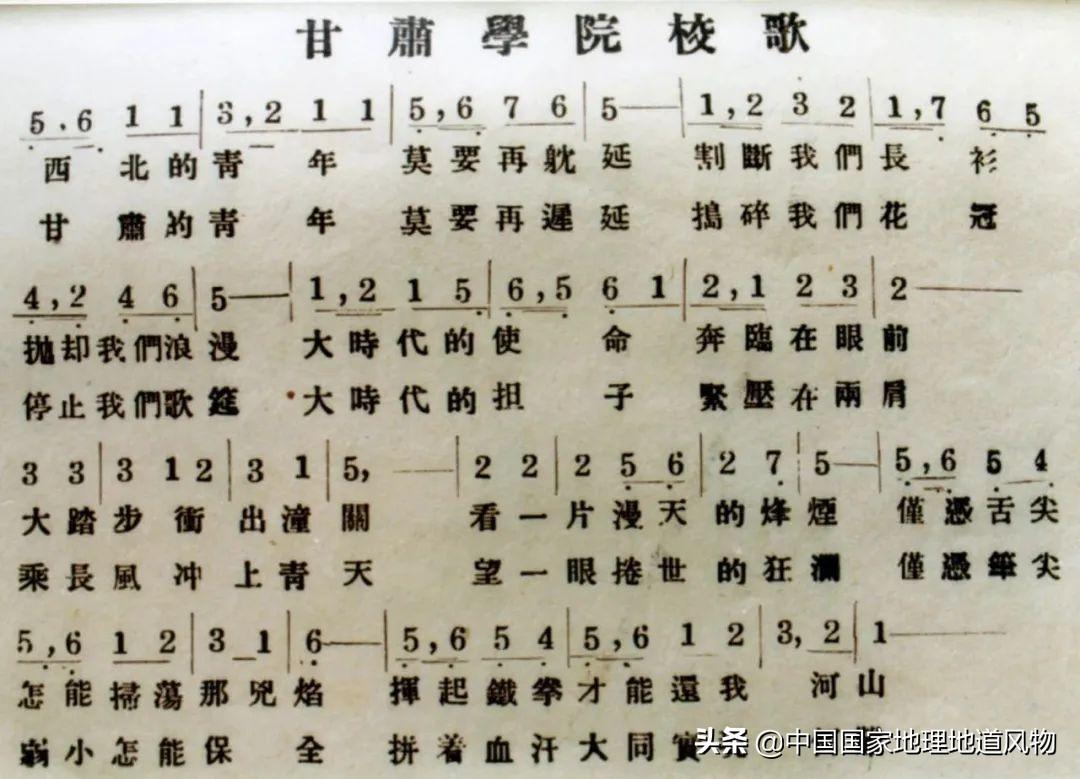 甘肅學院校歌
5.6 1 1 | 3,2 1 1 | 5,6 7 6 | 5— | 1,2 3 2 | 1,7 6 5
西北的青年 莫要再躭延 割斷我們長衫
甘肅的青年 莫要再遲延 搗碎我們花冠
4,2 4 6 | 5— | 1,2 1 5 | 6,5 6 1 | 2,1 2 3 | 2—
拋却我們浪漫 大時代的使命 奔臨在眼前
停止我們歌筵 大時代的担子 緊壓在兩肩
3 3 | 3 1 2 | 3 1 | 5, — | 2 2 | 2 5 6 | 2 7 | 5— | 5,6 5 4
大踏步衝出潼關 看一片漫天的烽煙 僅憑舌尖
乘長風冲上青天 望一眼捲世的狂瀾 僅憑筆尖
5,6 1 2 | 3 1 | 6— | 5,6 5 4 | 5,6 1 2 | 3,2 | 1—
怎能掃蕩那兇焰 揮起鐵拳才能還我河山
弱小怎能保全 拼着血汗大同實
头条 @中国国家地理地道风物